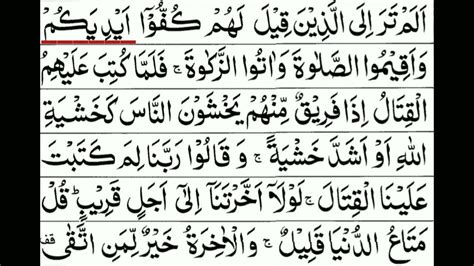 اَلَمْ تَرَ اِلَى الَّذِيْنَ قِيْلَ لَهُمْ كُفُّوْۤا اَيْدِيَكُمْ
وَاَقِيْمُوا الصَّلٰوةَ وَاٰتُوا الزَّكٰوةَ ۚ فَلَمَّا كُتِبَ عَلَيْهِمُ
الْقِتَالُ اِذَا فَرِيْقٌ مِّنْهُمْ يَخْشَوْنَ النَّاسَ كَخَشْيَةِ
اللّٰهِ اَوْ اَشَدَّ خَشْيَةً ۚ وَ قَالُوْا رَبَّنَا لِمَ كَتَبْتَ
عَلَيْنَا الْقِتَالَ ۚ لَوْلَاۤ اَخَّرْتَنَاۤ اِلٰۤى اَجَلٍ قَرِيْبٍ ؕ قُلْ
مَتَاعُ الدُّنْيَا قَلِيْلٌ ۚ وَالْاٰخِرَةُ خَيْرٌ لِّمَنِ اتَّقٰى قف